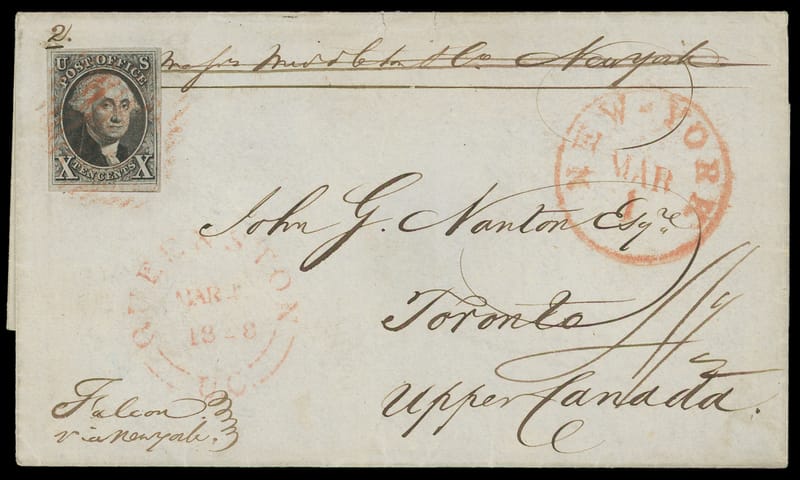 2.
Messrs Middleton & Co. New York
U S
POST OFFICE
X TEN CENTS X
NEW-YORK
MAR
1
John G. Nanton Esqre.
Toronto
Upper Canada.
QUEENSTON
MAR
1848
U.C.
Falcon
via New york.